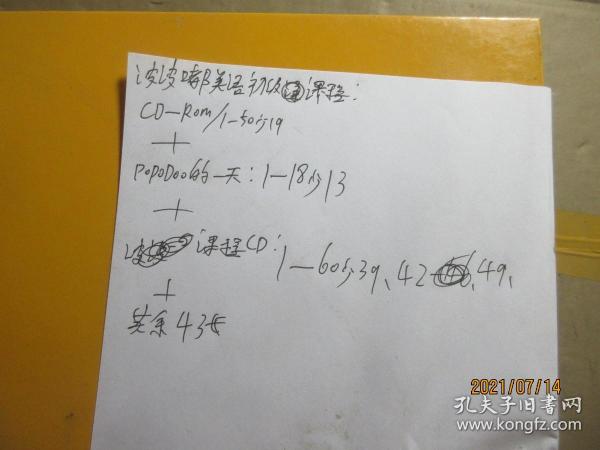 波波嘟英语初级课程:
CD-Rom/1-50少19
+
POPODOO的一天:1-18少13
+
课程CD:
1-60少39、42、49、
+
其余43张
2021/07/14
孔夫子旧书网
www.kongfz.com